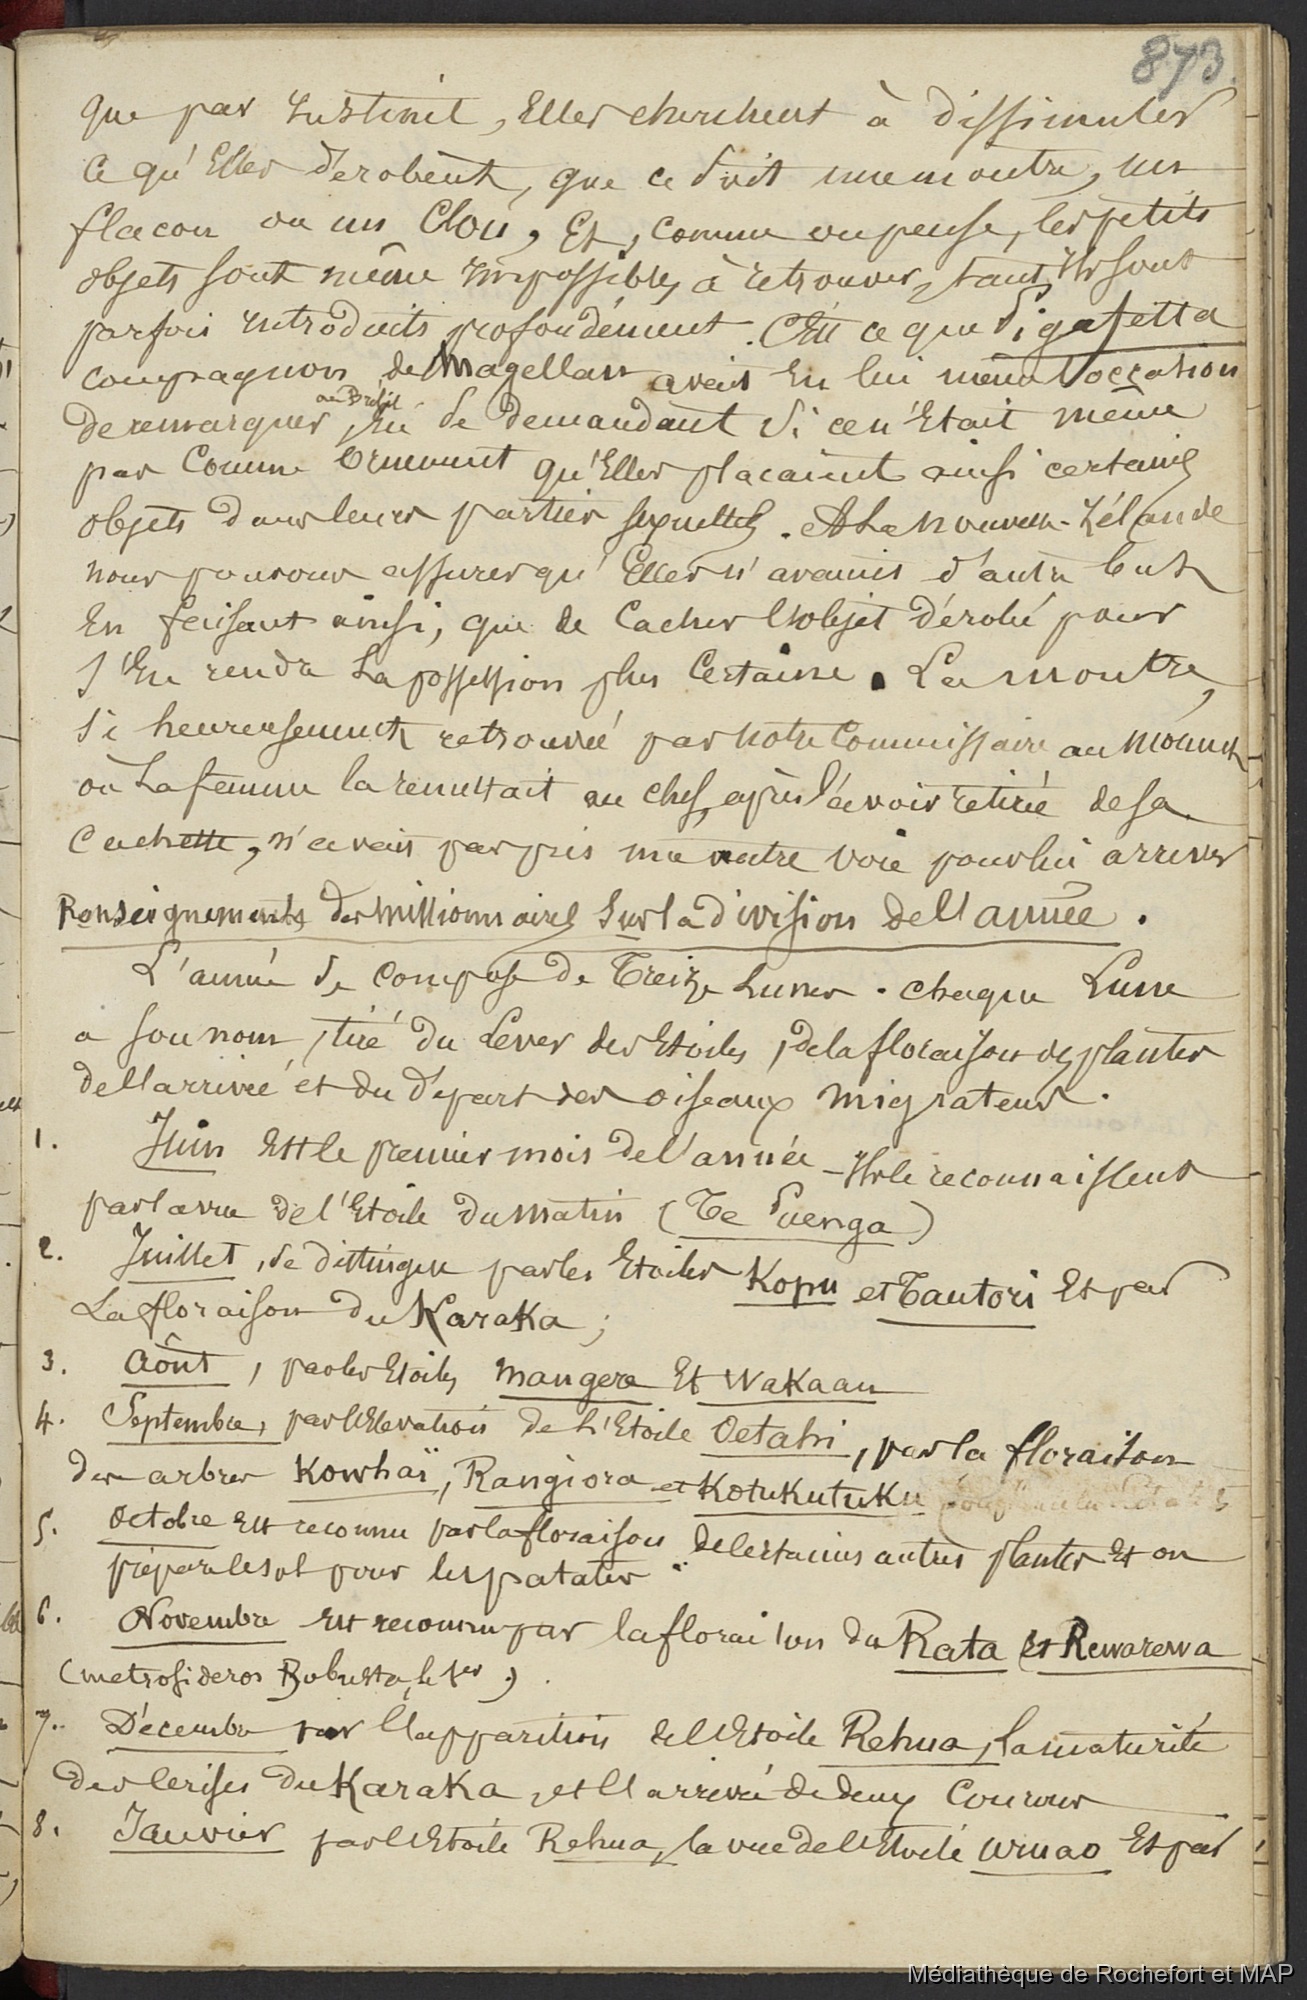 873.
que par instinct, Elles cherchent à dissimuler
Ce qu'Elles dérobent, que ce soit une montre, un
flacon ou un Clou, Et, comme on pense, les petits
objets sont même impossibles à retrouver, tant Ils sont
parfois introduits profondément. C'Est ce que Pigafetta
compagnon de Magellan avait Eu lui même l'occasion
de remarquer au Brésil, En se demandant si ce n'Etait même
pas Comme Ornement qu'Elles plaçaient ainsi certains
objets dans leurs parties sexuelles. A La Nouvelle-Zélande
nous pouvons assurer qu'Elles n'avaient d'autre but
En faisant ainsi, que de Cacher l'objet dérobé pour
s'En rendre La possession plus Certaine. La montre,
si heureusement retrouvée par notre Commissaire au moment
où La femme la remettait au chef, après l'avoir retirée de sa
Cachette, n'avait pas pris une autre voie pour lui arriver
Renseignements des missionnaires sur la division de l'année.
L'année se compose de Treize Lunes. chaque Lune
a son nom, tiré du Lever des Etoiles, de la floraison des plantes
de l'arrivée et du départ des oiseaux migrateurs.
1. Juin Est le premier mois de l'année - Ils le reconnaissent
par la vue de l'Etoile du matin (Te Puenga)
2. Juillet, se distingue par les Etoiles Kopu et Tautori Et par
La floraison du Karaka;
3. Août, par les Etoiles Mangere Et Wakaau
4. Septembre, par l'Elevation de L'Etoile Oetahi, par la floraison
des arbres Kowhaï, Rangiora et Kotukutuku
5. Octobre Est reconnu par la floraison de Certaines autres plantes Et on
prépare le sol pour les patates.
6. Novembre Est reconnu par la floraison du Rata Et Rewarewa
(metrosideros Robusta, le 1er.)
7. Décembre par l'apparition de l'Etoile Rehua, la maturité
des Cerises du Karaka, et l'arrivée de deux Coucous
8. Janvier par l'Etoile Rehua, la vue de l'Etoile Uruao Et par
Médiathèque de Rochefort et MAP